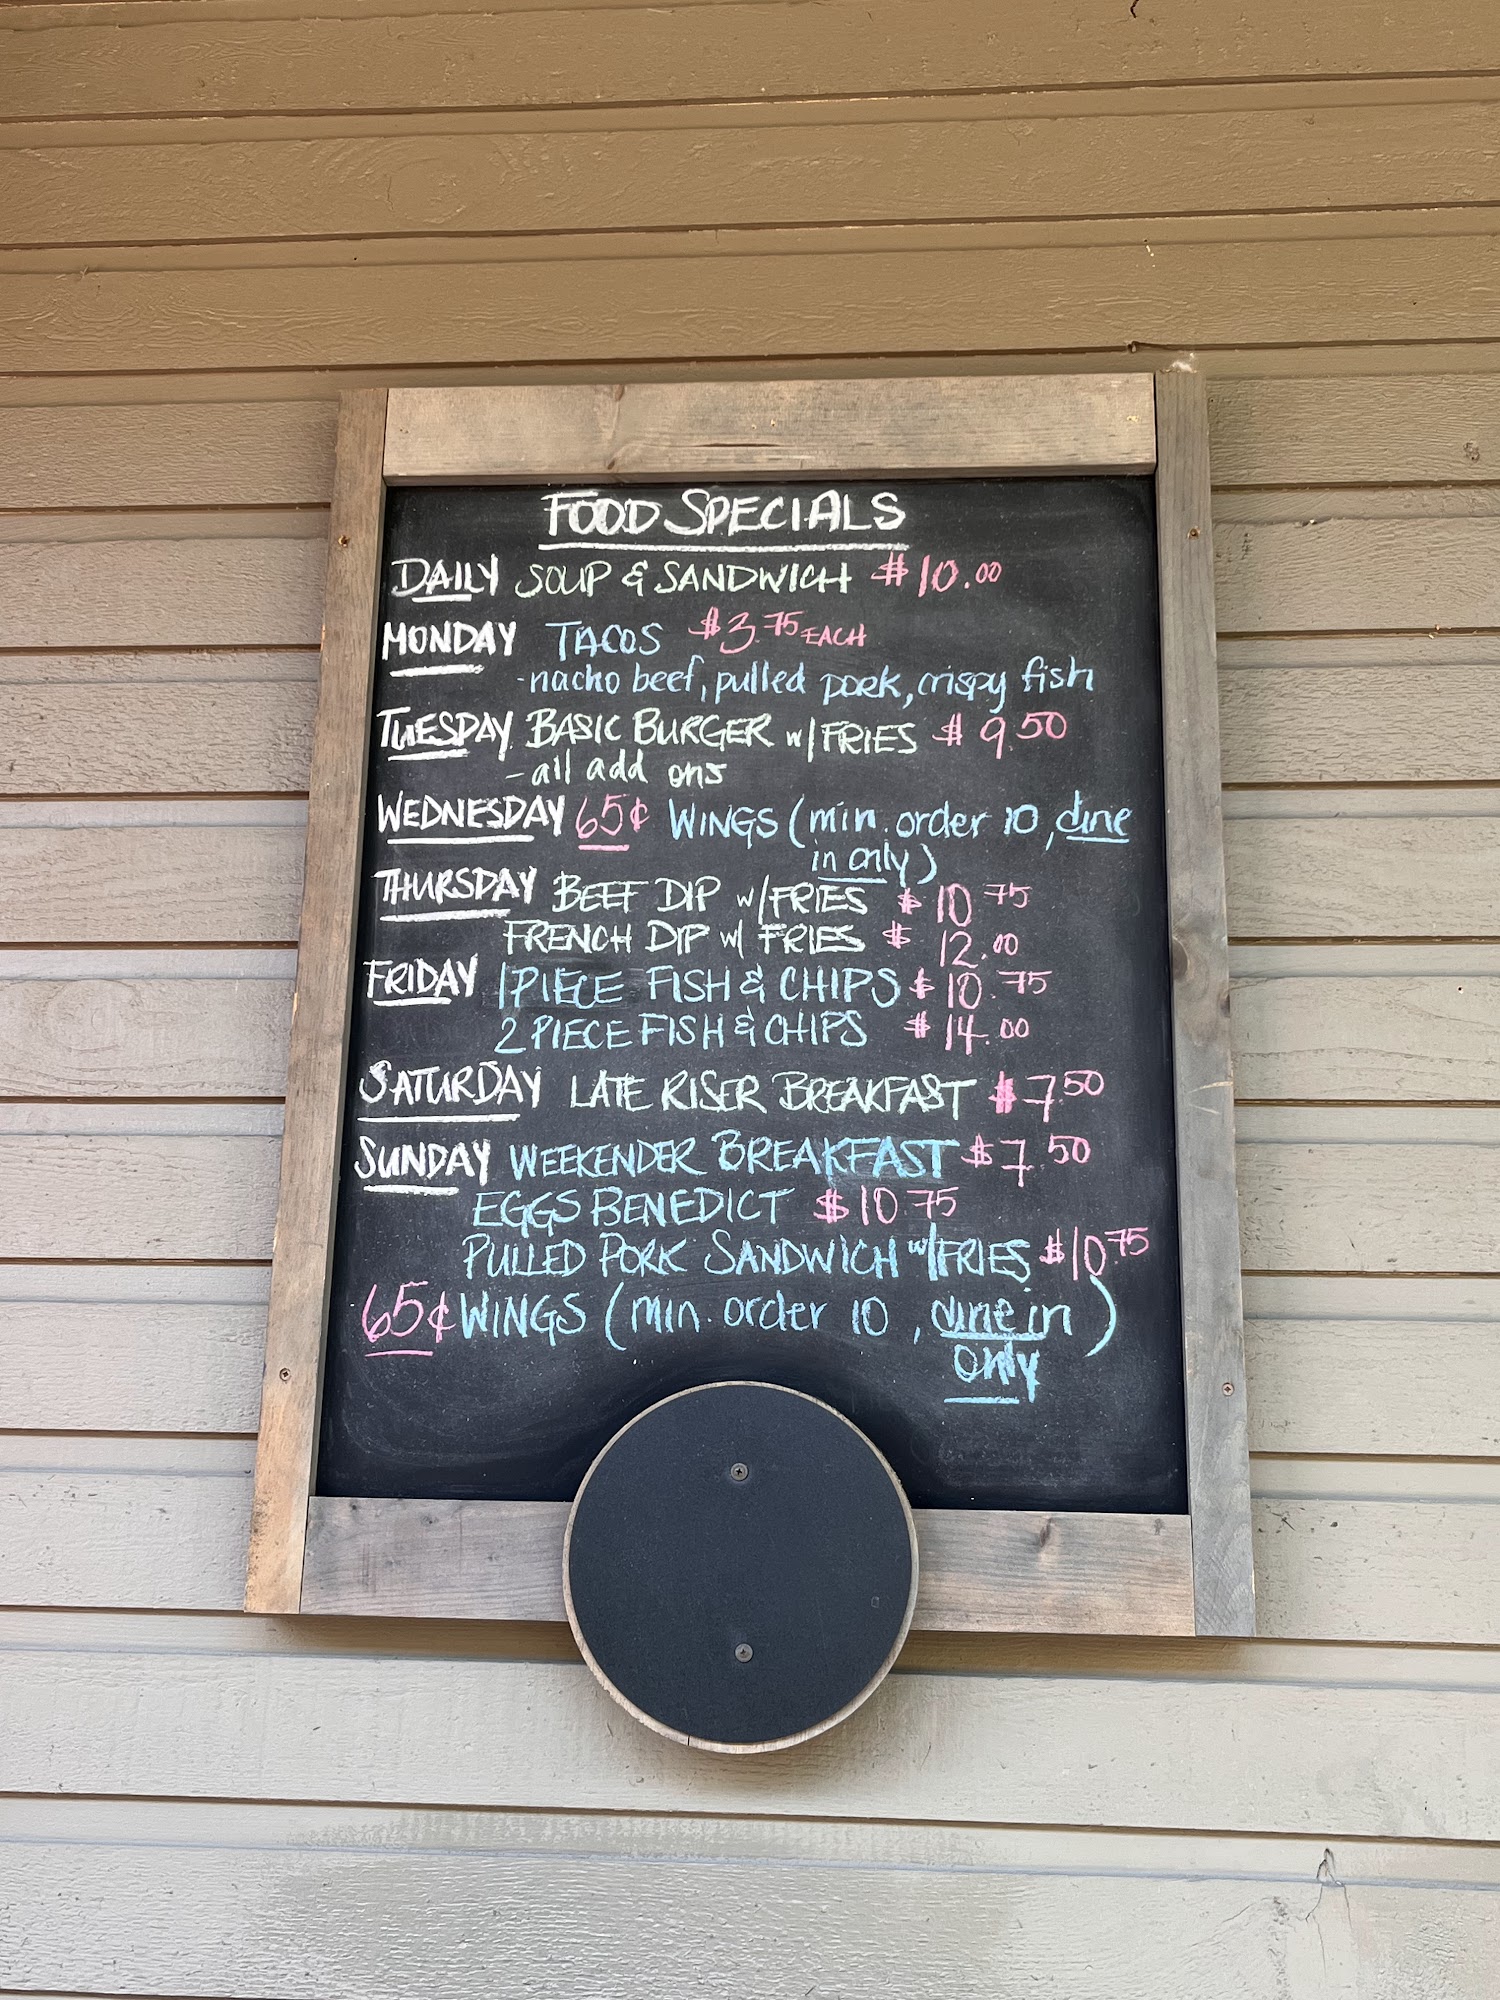 FOOD SPECIALS
DAILY SOUP & SANDWICH $10.00
MONDAY TACOS $3.75 EACH
-nacho beef, pulled pork, crispy fish
TUESDAY BASIC BURGER w/ FRIES $9.50
- all add ons
WEDNESDAY 65¢ WINGS (min. order 10, dine
in only)
THURSDAY BEEF DIP w/ FRIES $10.75
FRENCH DIP w/ FRIES $12.00
FRIDAY 1 PIECE FISH & CHIPS $10.75
2 PIECE FISH & CHIPS $14.00
SATURDAY LATE RISER BREAKFAST $7.50
SUNDAY WEEKENDER BREAKFAST $7.50
EGGS BENEDICT $10.75
PULLED PORK SANDWICH w/ FRIES $10.75
65¢ WINGS (min. order 10, dine in)
only